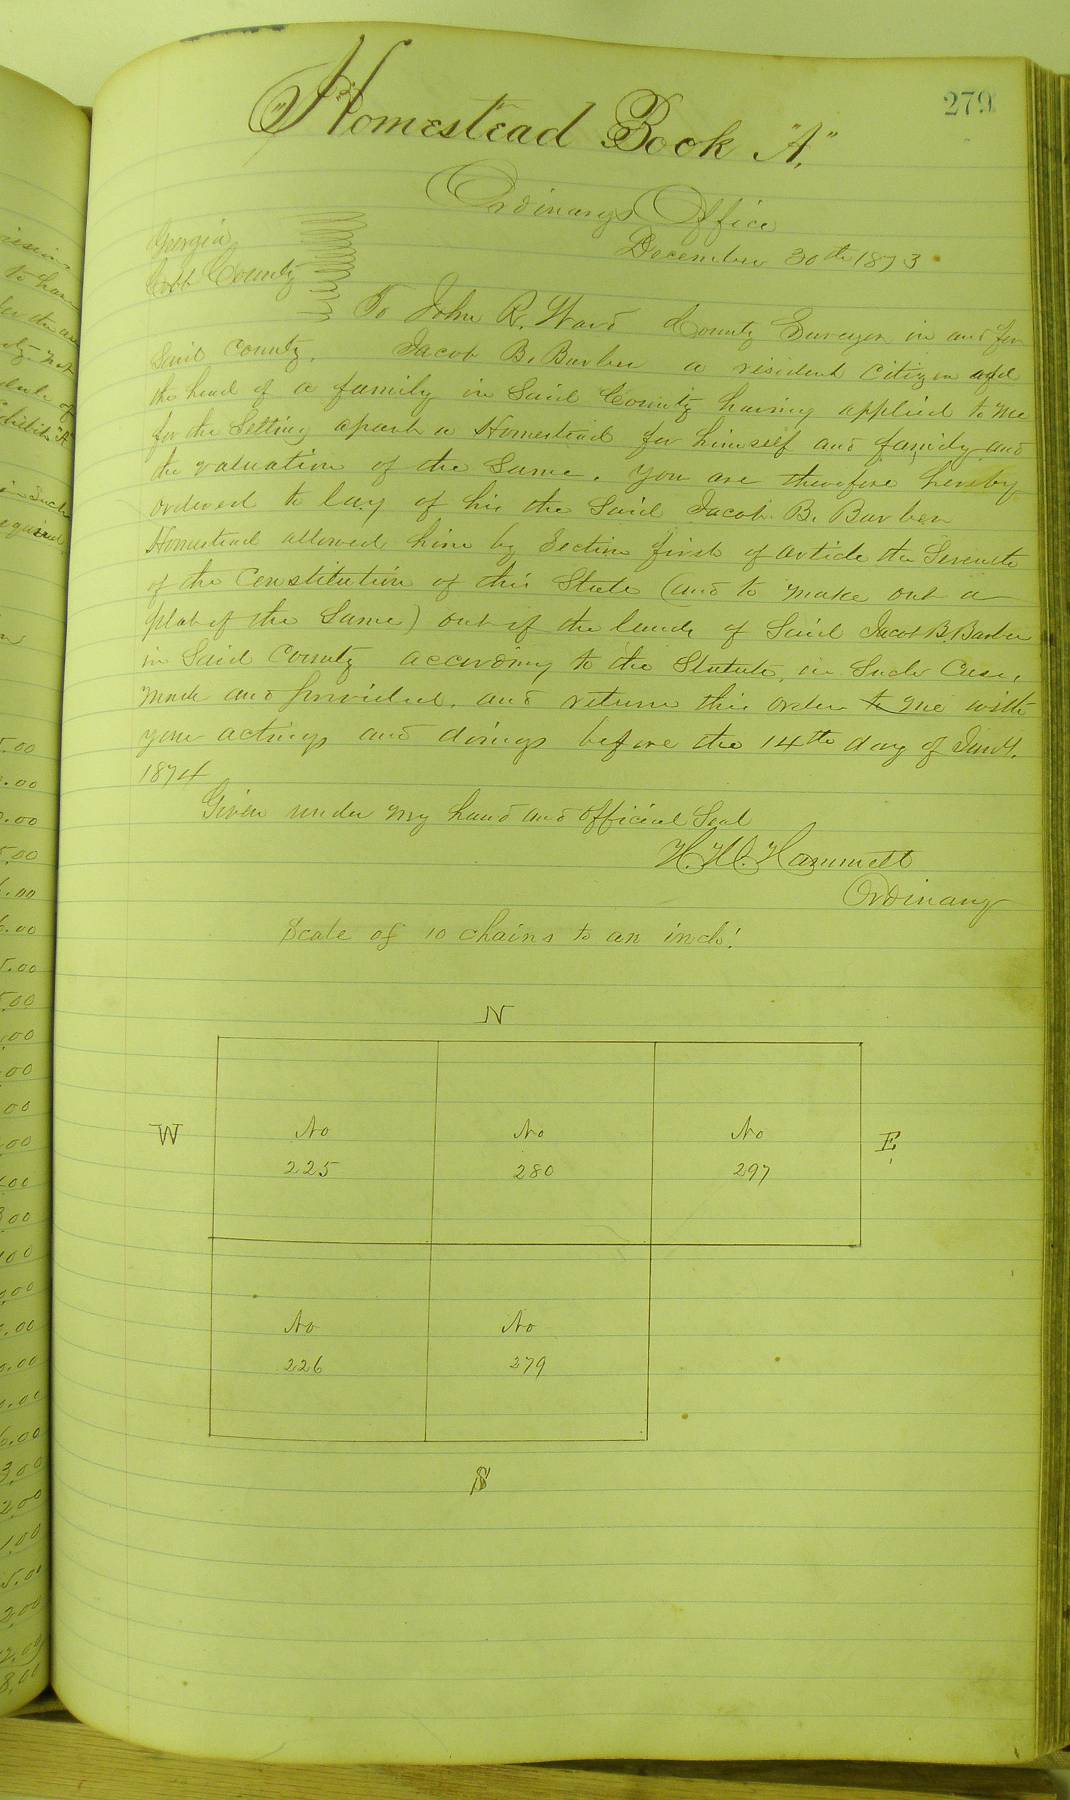 279
"Homestead Book "A,"
Ordinarys Office
Georgia
Cobb County
December 30th 1873
To John R. Ward County Surveyor in and for
Said County. Jacob B. Barber a resident Citizen and
the head of a family in Said County having applied to me
for the Setting apart a Homestead for himself and family and
the valuation of the Same. you are therefore hereby
ordered to lay of his the Said Jacob B. Barber
Homestead allowed him by Section first of article the Seventh
of the Constitution of this State (and to make out a
plat of the Same) out of the lands of Said Jacob B. Barber
in Said County according to the Statute, in Such Case,
made and provided. and return this order to me with
your actings and doings before the 14th day of Jany.
1874
Given under my hand and official Seal
H. M. Hammett
Ordinary
Scale of 10 chains to an inch!
N
W
No
225
No
280
No
297
E.
No
226
No
279
S